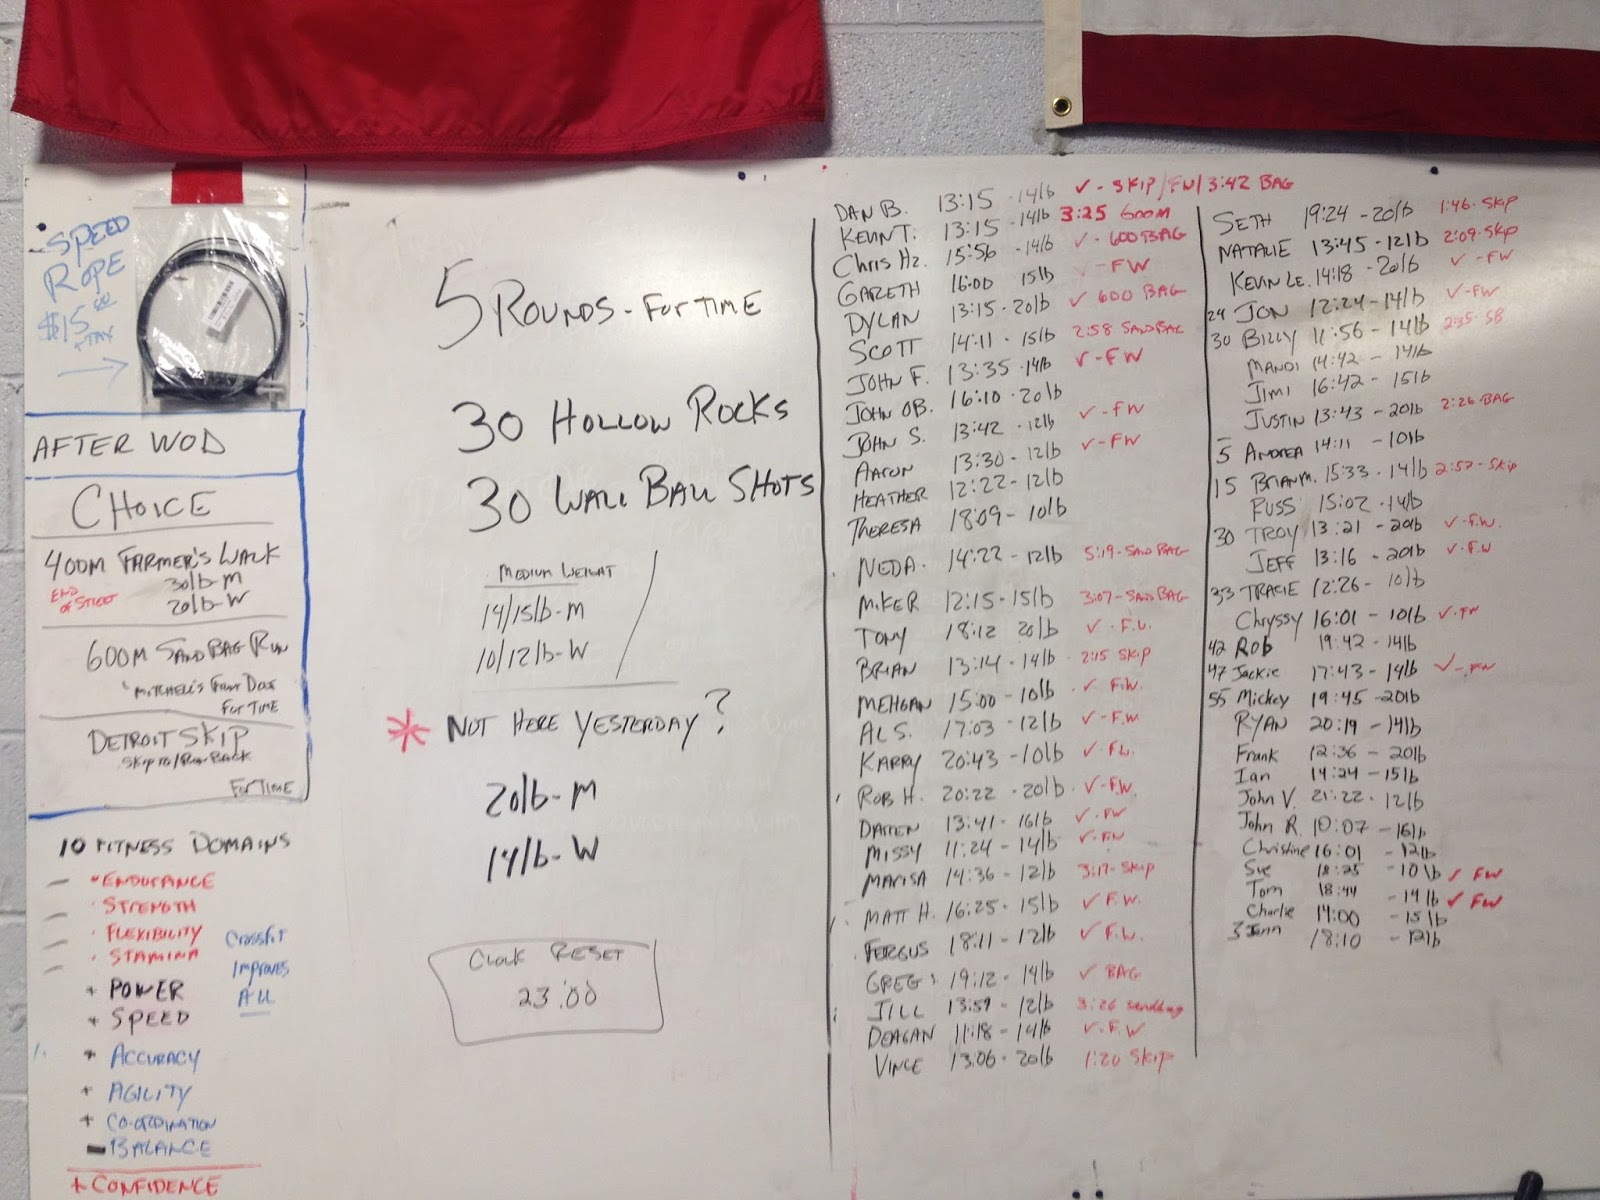 SPEED
ROPE
$15.00
+TAX
AFTER WOD
CHOICE
400M FARMER'S WALK
END OF STREET
30lb-M
20lb-W
600M SAND BAG RUN
FOR TIME
DETROIT SKIP
SKIP TO/RUN BACK
FOR TIME
10 FITNESS DOMAINS
ENDURANCE
STRENGTH
FLEXIBILITY
STAMINA
POWER
SPEED
ACCURACY
AGILITY
CO-ORDINATION
BALANCE
+ CONFIDENCE
CROSSFIT
IMPROVES
ALL
5 ROUNDS - FOR TIME
30 HOLLOW ROCKS
30 WALL BALL SHOTS
MEDIUM WEIGHT
14/15lb-M
10/12lb-W
* NOT HERE YESTERDAY?
20lb-M
14lb-W
CLOCK RESET
23:00
DAN B. 13:15 - 14lb ✓ - SKIP/FW/3:42 BAG
KEVIN T. 13:15 - 14lb 3:25 600M
CHRIS HZ. 15:56 - 14lb ✓ - 600 BAG
GARETH 16:00 15lb ✓ - FW
DYLAN 13:15 - 20lb ✓ 600 BAG
SCOTT 14:11 - 15lb 2:58 SANDBAG
JOHN F. 13:35 - 14lb ✓ - FW
JOHN OB. 16:10 - 20lb
JOHN S. 13:42 - 12lb ✓ - FW
AARON 13:30 - 12lb ✓ - FW
HEATHER 12:22 - 12lb
THERESA 18:09 - 10lb
NEDA 14:22 - 12lb 5:19 - SAND BAG
MIKE R 12:15 - 15lb 3:07 - SAND BAG
TONY 18:12 20lb ✓ - F.W.
BRIAN 13:14 - 14lb 2:15 SKIP
MEHGAN 15:00 - 10lb ✓ F.W.
AL S. 17:03 - 12lb ✓ - F.W
KARRY 20:43 - 10lb ✓ - FW.
ROB H. 20:22 - 20lb ✓ - F.W.
DARREN 13:41 - 16lb ✓ - FW
MISSY 11:24 - 14lb ✓ - F.W
MARISA 14:36 - 12lb 3:17 - SKIP
MATT H. 16:25 - 15lb ✓ F.W.
FERGUS 18:11 - 12lb ✓ F.W.
GREG 19:12 - 14lb ✓ BAG
JILL 13:59 - 12lb 3:26 sandbag
DEAGAN 11:18 - 14lb ✓ - F.W
VINCE 13:06 - 20lb 1:20 SKIP
SETH 19:24 - 20lb 1:46 - SKIP
NATALIE 13:45 - 12lb 2:09 - SKIP
KEVIN LE. 14:18 - 20lb ✓ - FW
24 JON 12:24 - 14lb ✓ - FW
30 BILLY 11:56 - 14lb 2:35 - SB
MANDI 14:42 - 14lb
JIMI 16:42 - 15lb
JUSTIN 13:43 - 20lb 2:26 - BAG
5 ANDREA 14:11 - 10lb
15 BRIAN M. 15:33 - 14lb 2:57 - SKIP
RUSS 15:02 - 14lb
30 TROY 13:21 - 20lb ✓ - F.W.
JEFF 13:16 - 20lb ✓ - F.W
33 TRACIE 12:26 - 10lb
Chryssy 16:01 - 10lb ✓ - FW
42 Rob 19:42 - 14lb
47 Jackie 17:43 - 14lb ✓ - FW
55 Mickey 19:45 - 20lb
RYAN 20:19 - 14lb
Frank 12:36 - 20lb
Ian 14:24 - 15lb
John V. 21:22 - 12lb
John R. 10:07 - 16lb
Christine 16:01 - 12lb
Sue 18:25 - 10lb ✓ FW
Tom 18:44 - 14lb ✓ FW
Charlie 14:00 - 15lb
Jenn 18:10 - 12lb